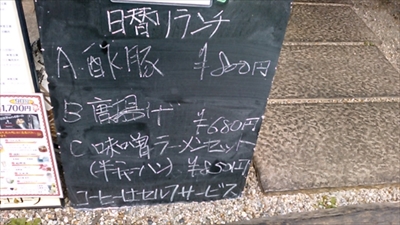 日替りランチ
A. 酢豚 ¥800円
B 唐揚げ ¥680円
C 味噌ラーメンセット
(半チャーハン) ¥850円
コーヒーはセルフサービス
1,700円